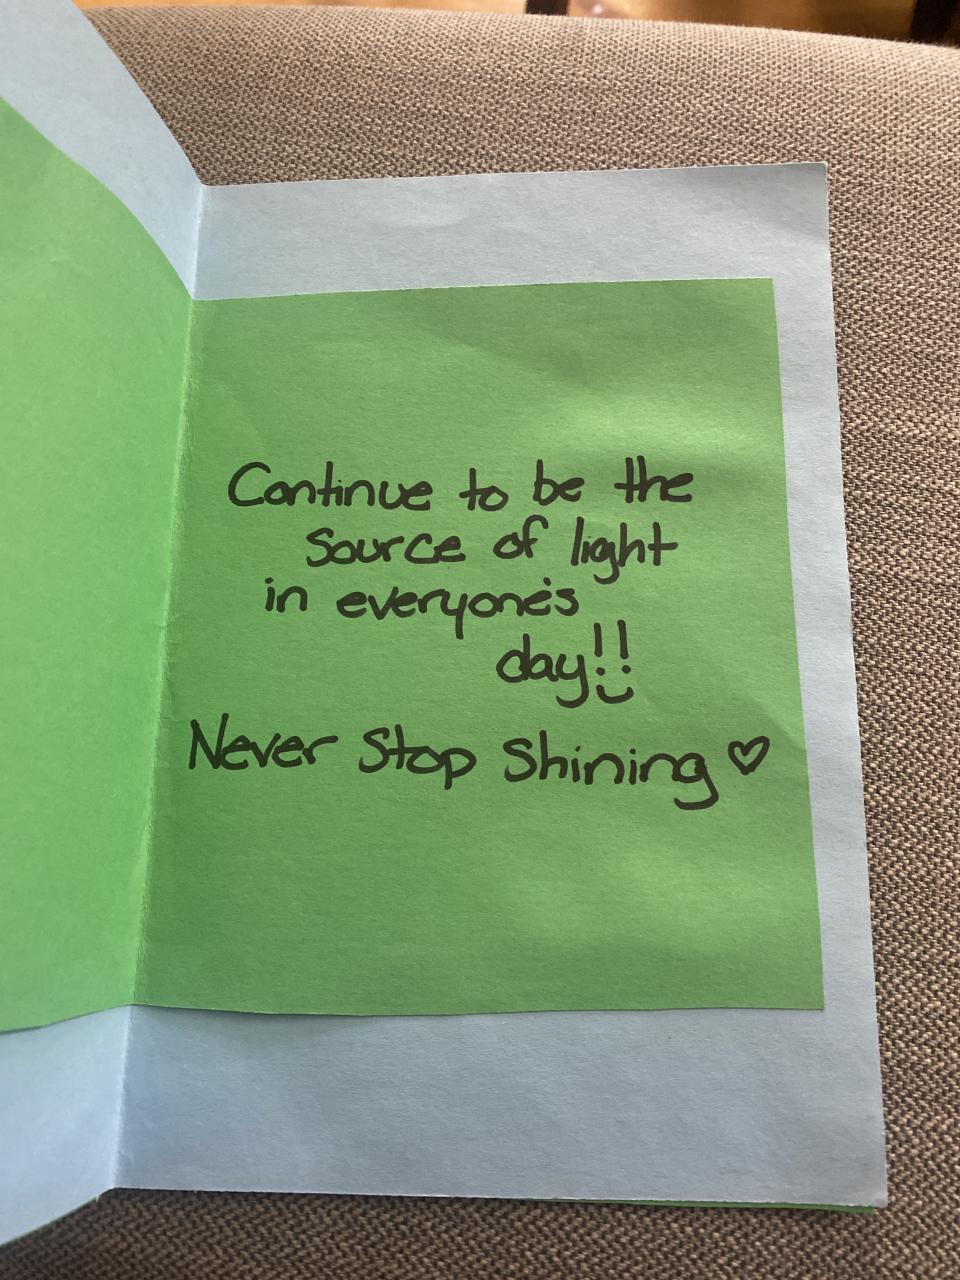 Continue to be the
source of light
in everyone's
day!!
Never Stop Shining ♡